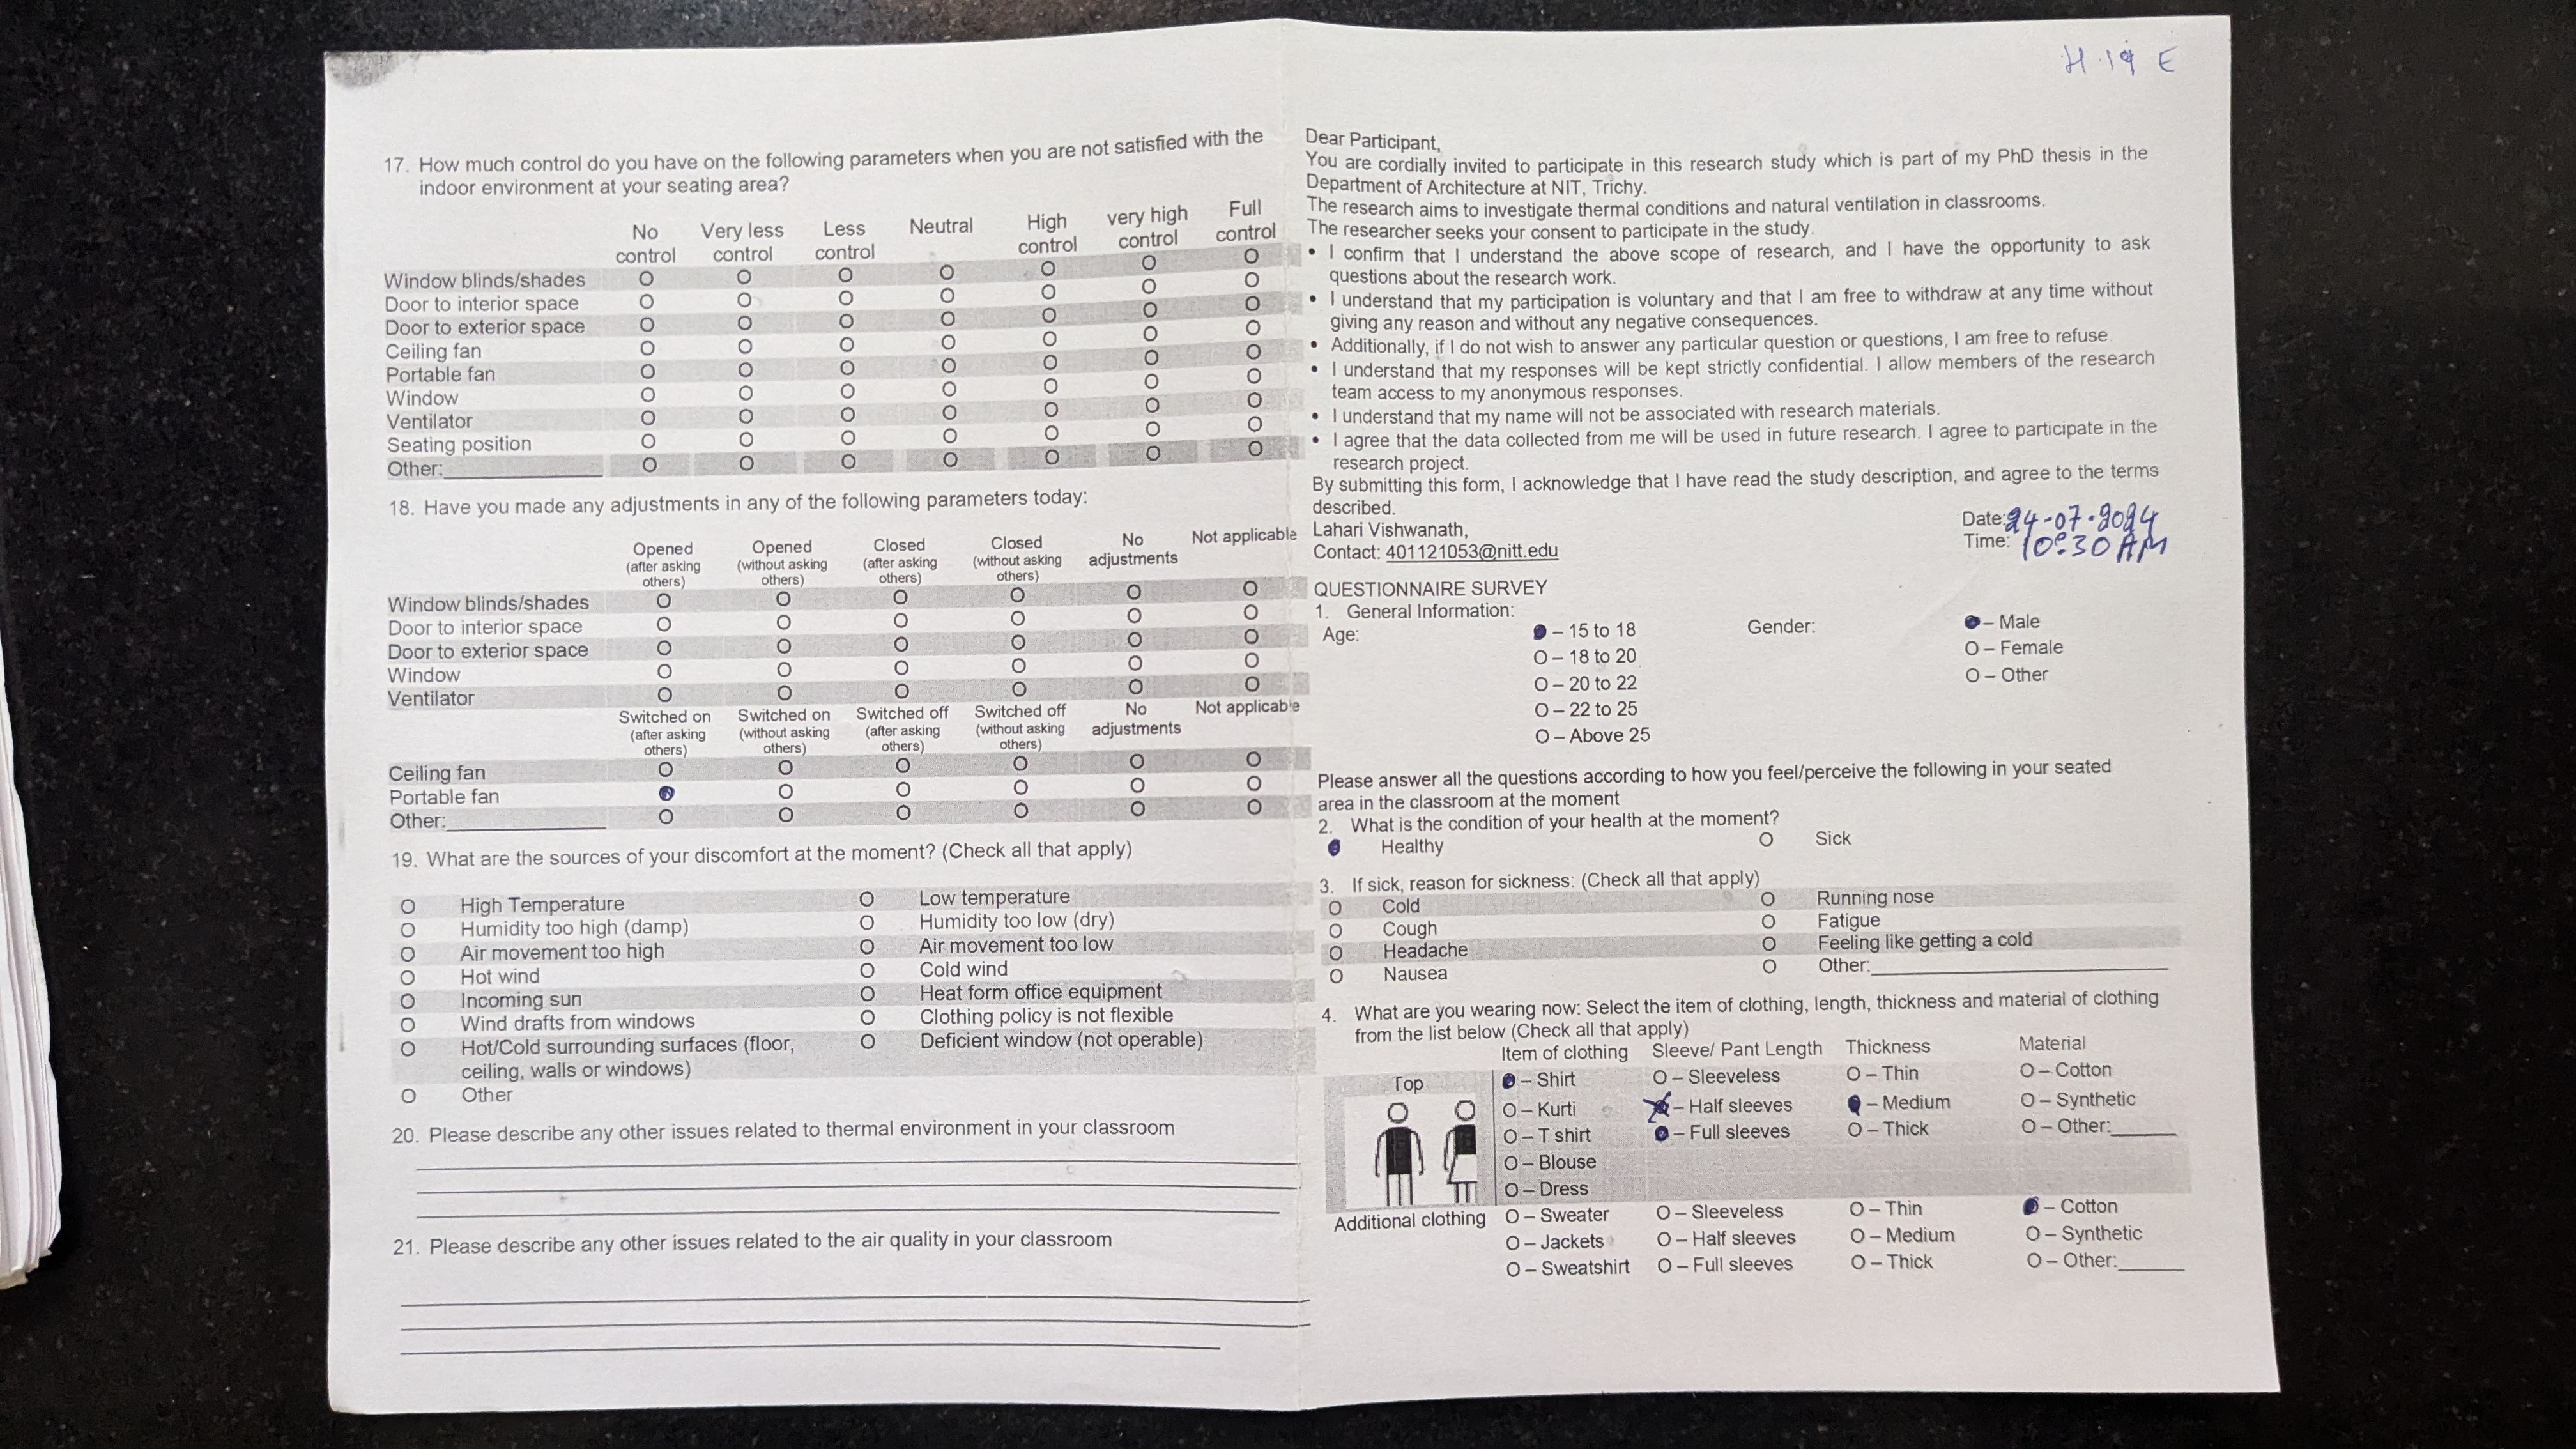 17. How much control do you have on the following parameters when you are not satisfied with the
indoor environment at your seating area?
No control Very less control Less control Neutral High control very high control Full control
Window blinds/shades O O O O O O O
Door to interior space O O O O O O O
Door to exterior space O O O O O O O
Ceiling fan O O O O O O O
Portable fan O O O O O O O
Window O O O O O O O
Ventilator O O O O O O O
Seating position O O O O O O O
Other:__________ O O O O O O O
18. Have you made any adjustments in any of the following parameters today:
Opened (after asking others) Opened (without asking others) Closed (after asking others) Closed (without asking others) No adjustments Not applicable
Window blinds/shades O O O O O O
Door to interior space O O O O O O
Door to exterior space O O O O O O
Window O O O O O O
Ventilator O O O O O O
Switched on (after asking others) Switched on (without asking others) Switched off (after asking others) Switched off (without asking others) No adjustments Not applicable
Ceiling fan O O O O O O
Portable fan ● O O O O O
Other:__________ O O O O O O
19. What are the sources of your discomfort at the moment? (Check all that apply)
O High Temperature O Low temperature
O Humidity too high (damp) O Humidity too low (dry)
O Air movement too high O Air movement too low
O Hot wind O Cold wind
O Incoming sun O Heat form office equipment
O Wind drafts from windows O Clothing policy is not flexible
O Hot/Cold surrounding surfaces (floor, O Deficient window (not operable)
ceiling, walls or windows)
O Other
20. Please describe any other issues related to thermal environment in your classroom
21. Please describe any other issues related to the air quality in your classroom
H 19 E
Dear Participant,
You are cordially invited to participate in this research study which is part of my PhD thesis in the
Department of Architecture at NIT, Trichy.
The research aims to investigate thermal conditions and natural ventilation in classrooms.
The researcher seeks your consent to participate in the study.
• I confirm that I understand the above scope of research, and I have the opportunity to ask
questions about the research work.
• I understand that my participation is voluntary and that I am free to withdraw at any time without
giving any reason and without any negative consequences.
• Additionally, if I do not wish to answer any particular question or questions, I am free to refuse.
• I understand that my responses will be kept strictly confidential. I allow members of the research
team access to my anonymous responses.
• I understand that my name will not be associated with research materials.
• I agree that the data collected from me will be used in future research. I agree to participate in the
research project.
By submitting this form, I acknowledge that I have read the study description, and agree to the terms
described.
Lahari Vishwanath,
Contact: 401121053@nitt.edu
Date: 24-07-2024
Time: 10:30 AM
QUESTIONNAIRE SURVEY
1. General Information:
Age: ● – 15 to 18 Gender: ● – Male
O – 18 to 20 O – Female
O – 20 to 22 O – Other
O – 22 to 25
O – Above 25
Please answer all the questions according to how you feel/perceive the following in your seated
area in the classroom at the moment
2. What is the condition of your health at the moment?
● Healthy O Sick
3. If sick, reason for sickness: (Check all that apply)
O Cold O Running nose
O Cough O Fatigue
O Headache O Feeling like getting a cold
O Nausea O Other:__________
4. What are you wearing now: Select the item of clothing, length, thickness and material of clothing
from the list below (Check all that apply)
Item of clothing Sleeve/ Pant Length Thickness Material
Top ● – Shirt O – Sleeveless O – Thin O – Cotton
O – Kurti ● – Half sleeves ● – Medium O – Synthetic
O – T shirt ● – Full sleeves O – Thick O – Other:______
O – Blouse
O – Dress
Additional clothing O – Sweater O – Sleeveless O – Thin ● – Cotton
O – Jackets O – Half sleeves O – Medium O – Synthetic
O – Sweatshirt O – Full sleeves O – Thick O – Other:______